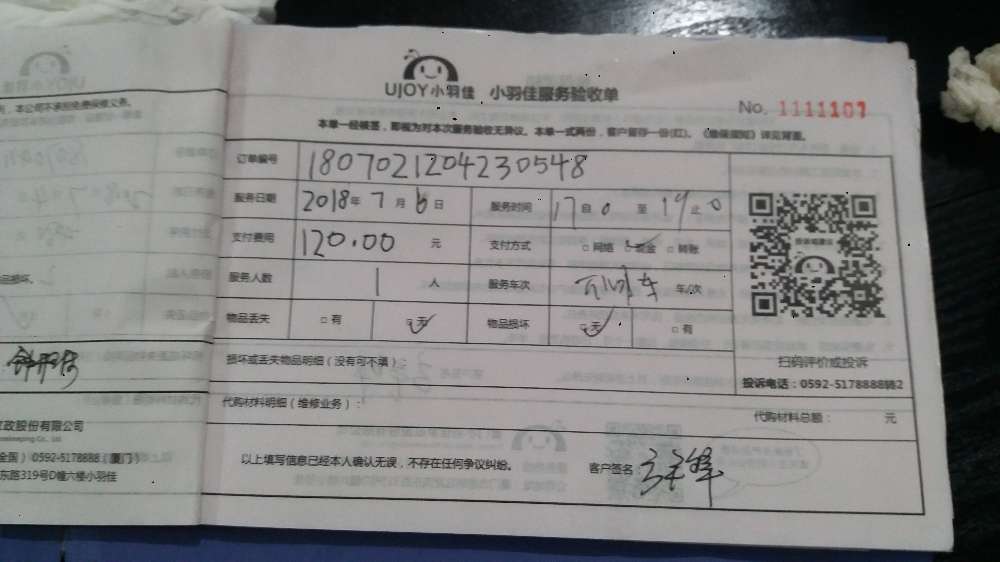 UJOY小羽佳 小羽佳服务验收单
No. 1111107
本单一经核签，即视为对本次服务验收无异议。本单一式两份，客户留存一份(红)。《维保须知》详见背面。
订单编号 1807021204230548
服务日期 2018年 7月 6日 服务时间 17自0至19止0
支付费用 120.00 元 支付方式 □网络 □现金 □转账
服务人数 1 人 服务车次 车/次
物品丢失 □有 □无 物品损坏 □无 □有
扫码评价或投诉
损坏或丢失物品明细（没有可不填）：
投诉电话：0592-5178888转2
代购材料明细（维修业务）：
代购材料总额： 元
以上填写信息已经本人确认无误，不存在任何争议纠纷。 客户签名
UJOY小羽佳
，本公司不承担免费保修义务。
品损坏.
政股份有限公司
keeping Co., Ltd
全国） 0592-5178888（厦门）
东路319号D幢六楼小羽佳